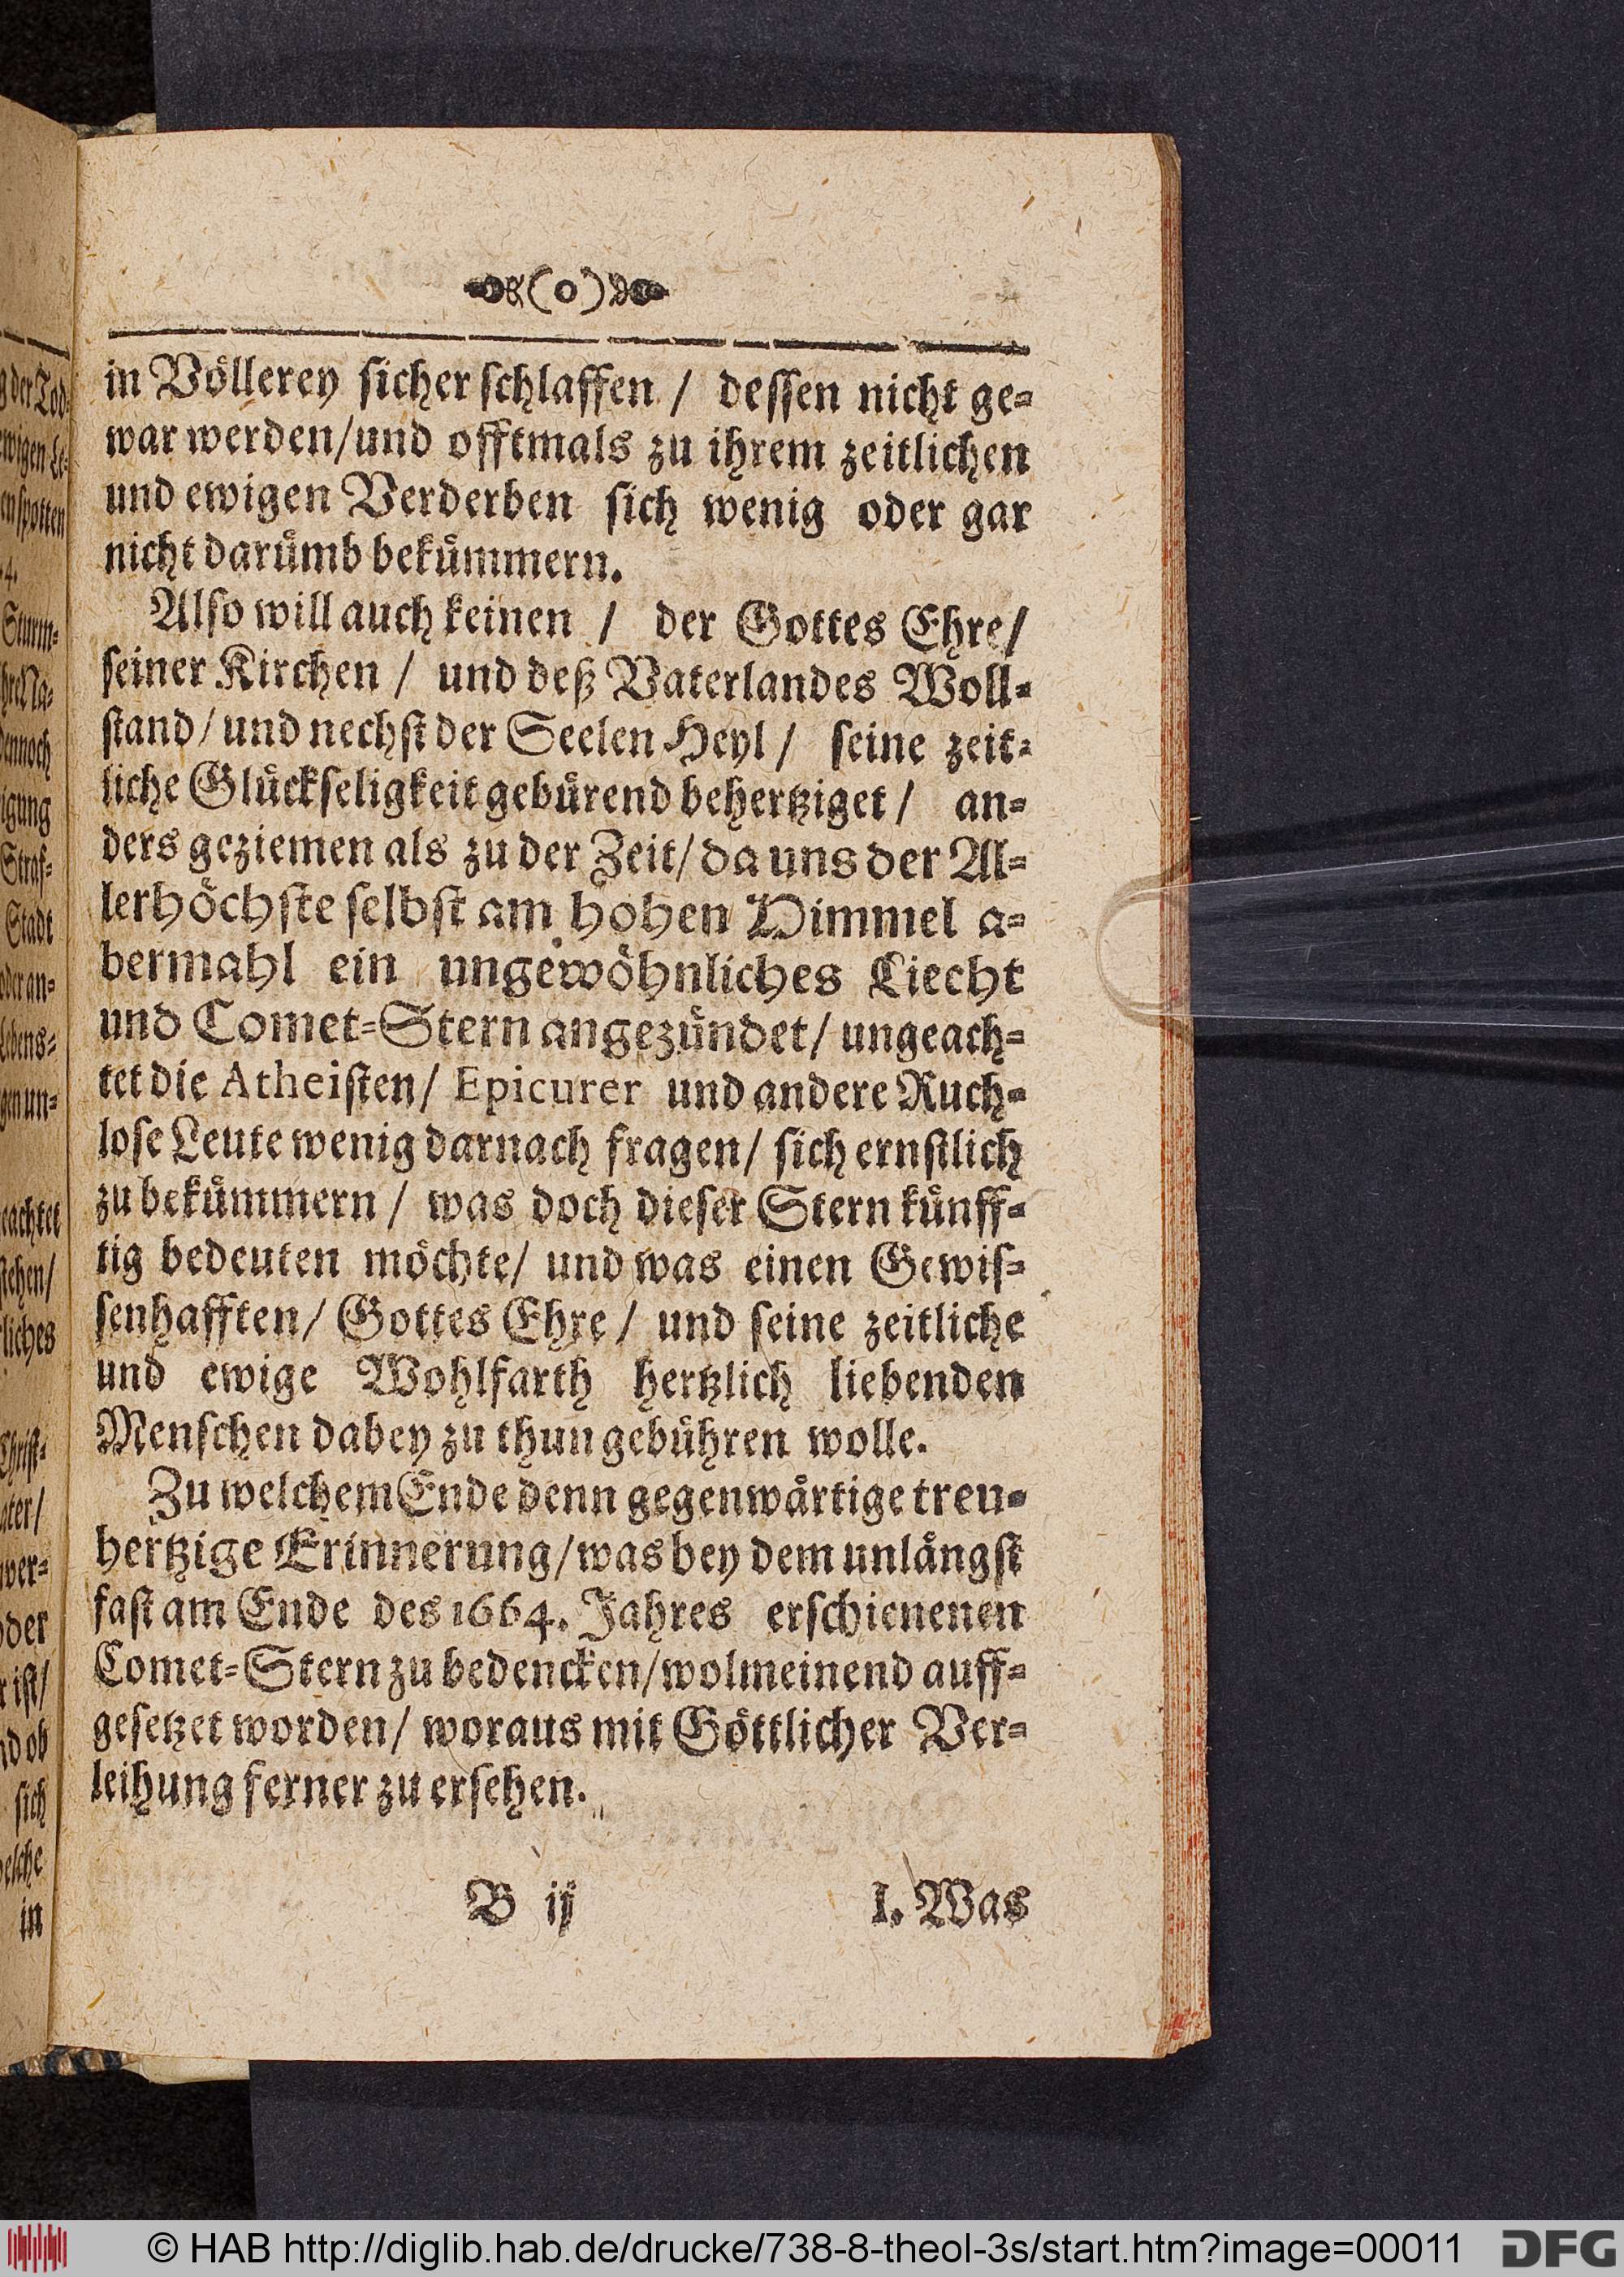 (o)
in Völlerey sicher schlaffen / dessen nicht ge-
war werden/und offtmals zu ihrem zeitlichen
und ewigen Verderben sich wenig oder gar
nicht darümb bekümmern.
Also will auch keinen / der Gottes Ehre/
seiner Kirchen / und deß Vaterlandes Woll-
stand/und nechst der Seelen Heyl / seine zeit-
liche Glückseligkeit gebürend behertziget / an-
ders geziemen als zu der Zeit/da uns der Al-
lerhöchste selbst am hohen Himmel a-
bermahl ein ungewöhnliches Liecht
und Comet-Stern angezündet/ungeach-
tet die Atheisten/ Epicurer und andere Ruch-
lose Leute wenig darnach fragen/ sich ernstlich
zu bekümmern / was doch dieser Stern künff-
tig bedeuten möchte/ und was einen Gewis-
senhafften/ Gottes Ehre / und seine zeitliche
und ewige Wohlfarth hertzlich liebenden
Menschen dabey zu thun gebühren wolle.
Zu welchem Ende denn gegenwärtige treu-
hertzige Erinnerung/was bey dem unlängst
fast am Ende des 1664. Jahres erschienenen
Comet-Stern zu bedencken/wolmeinend auff-
gesetzet worden/ woraus mit Göttlicher Ver-
leihung ferner zu ersehen.
B ij
I. Was
© HAB http://diglib.hab.de/drucke/738-8-theol-3s/start.htm?image=00011
DFG